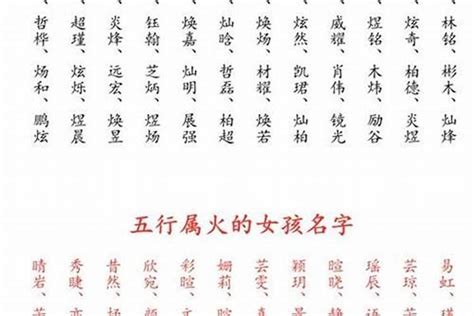 哲桦、超瑾、炎烽、钰翰、焕嘉、灿晗、焕炀、炫然、威耀、煜铭、炫奇、林铭、
炀和、炫烁、远宏、芝炳、灿明、哲磊、材耀、凯珺、肖伟、木炜、柏德、彬木、
鹏炫 煜晨 焕昱 煜炀 展强 柏超 焕若 灿焕 镜光 励谷 炎煜 灿烽
五行属火的女孩名字
晴岩、秀睫、昔然、欣宛、彩暄、姗莉、芸雯、颖玥、暄晓、瑶辰、芸琼、易虹、